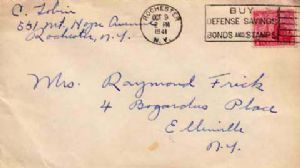 C. Tobin
531 Mt. Hope Avenue
Rochester, N.Y.
ROCHESTER
OCT 9
PM
1941
N.Y.
BUY
DEFENSE SAVINGS
BONDS AND STAMPS
Mrs. Raymond Frick
4 Bogardus Place
Ellinville
N.Y.